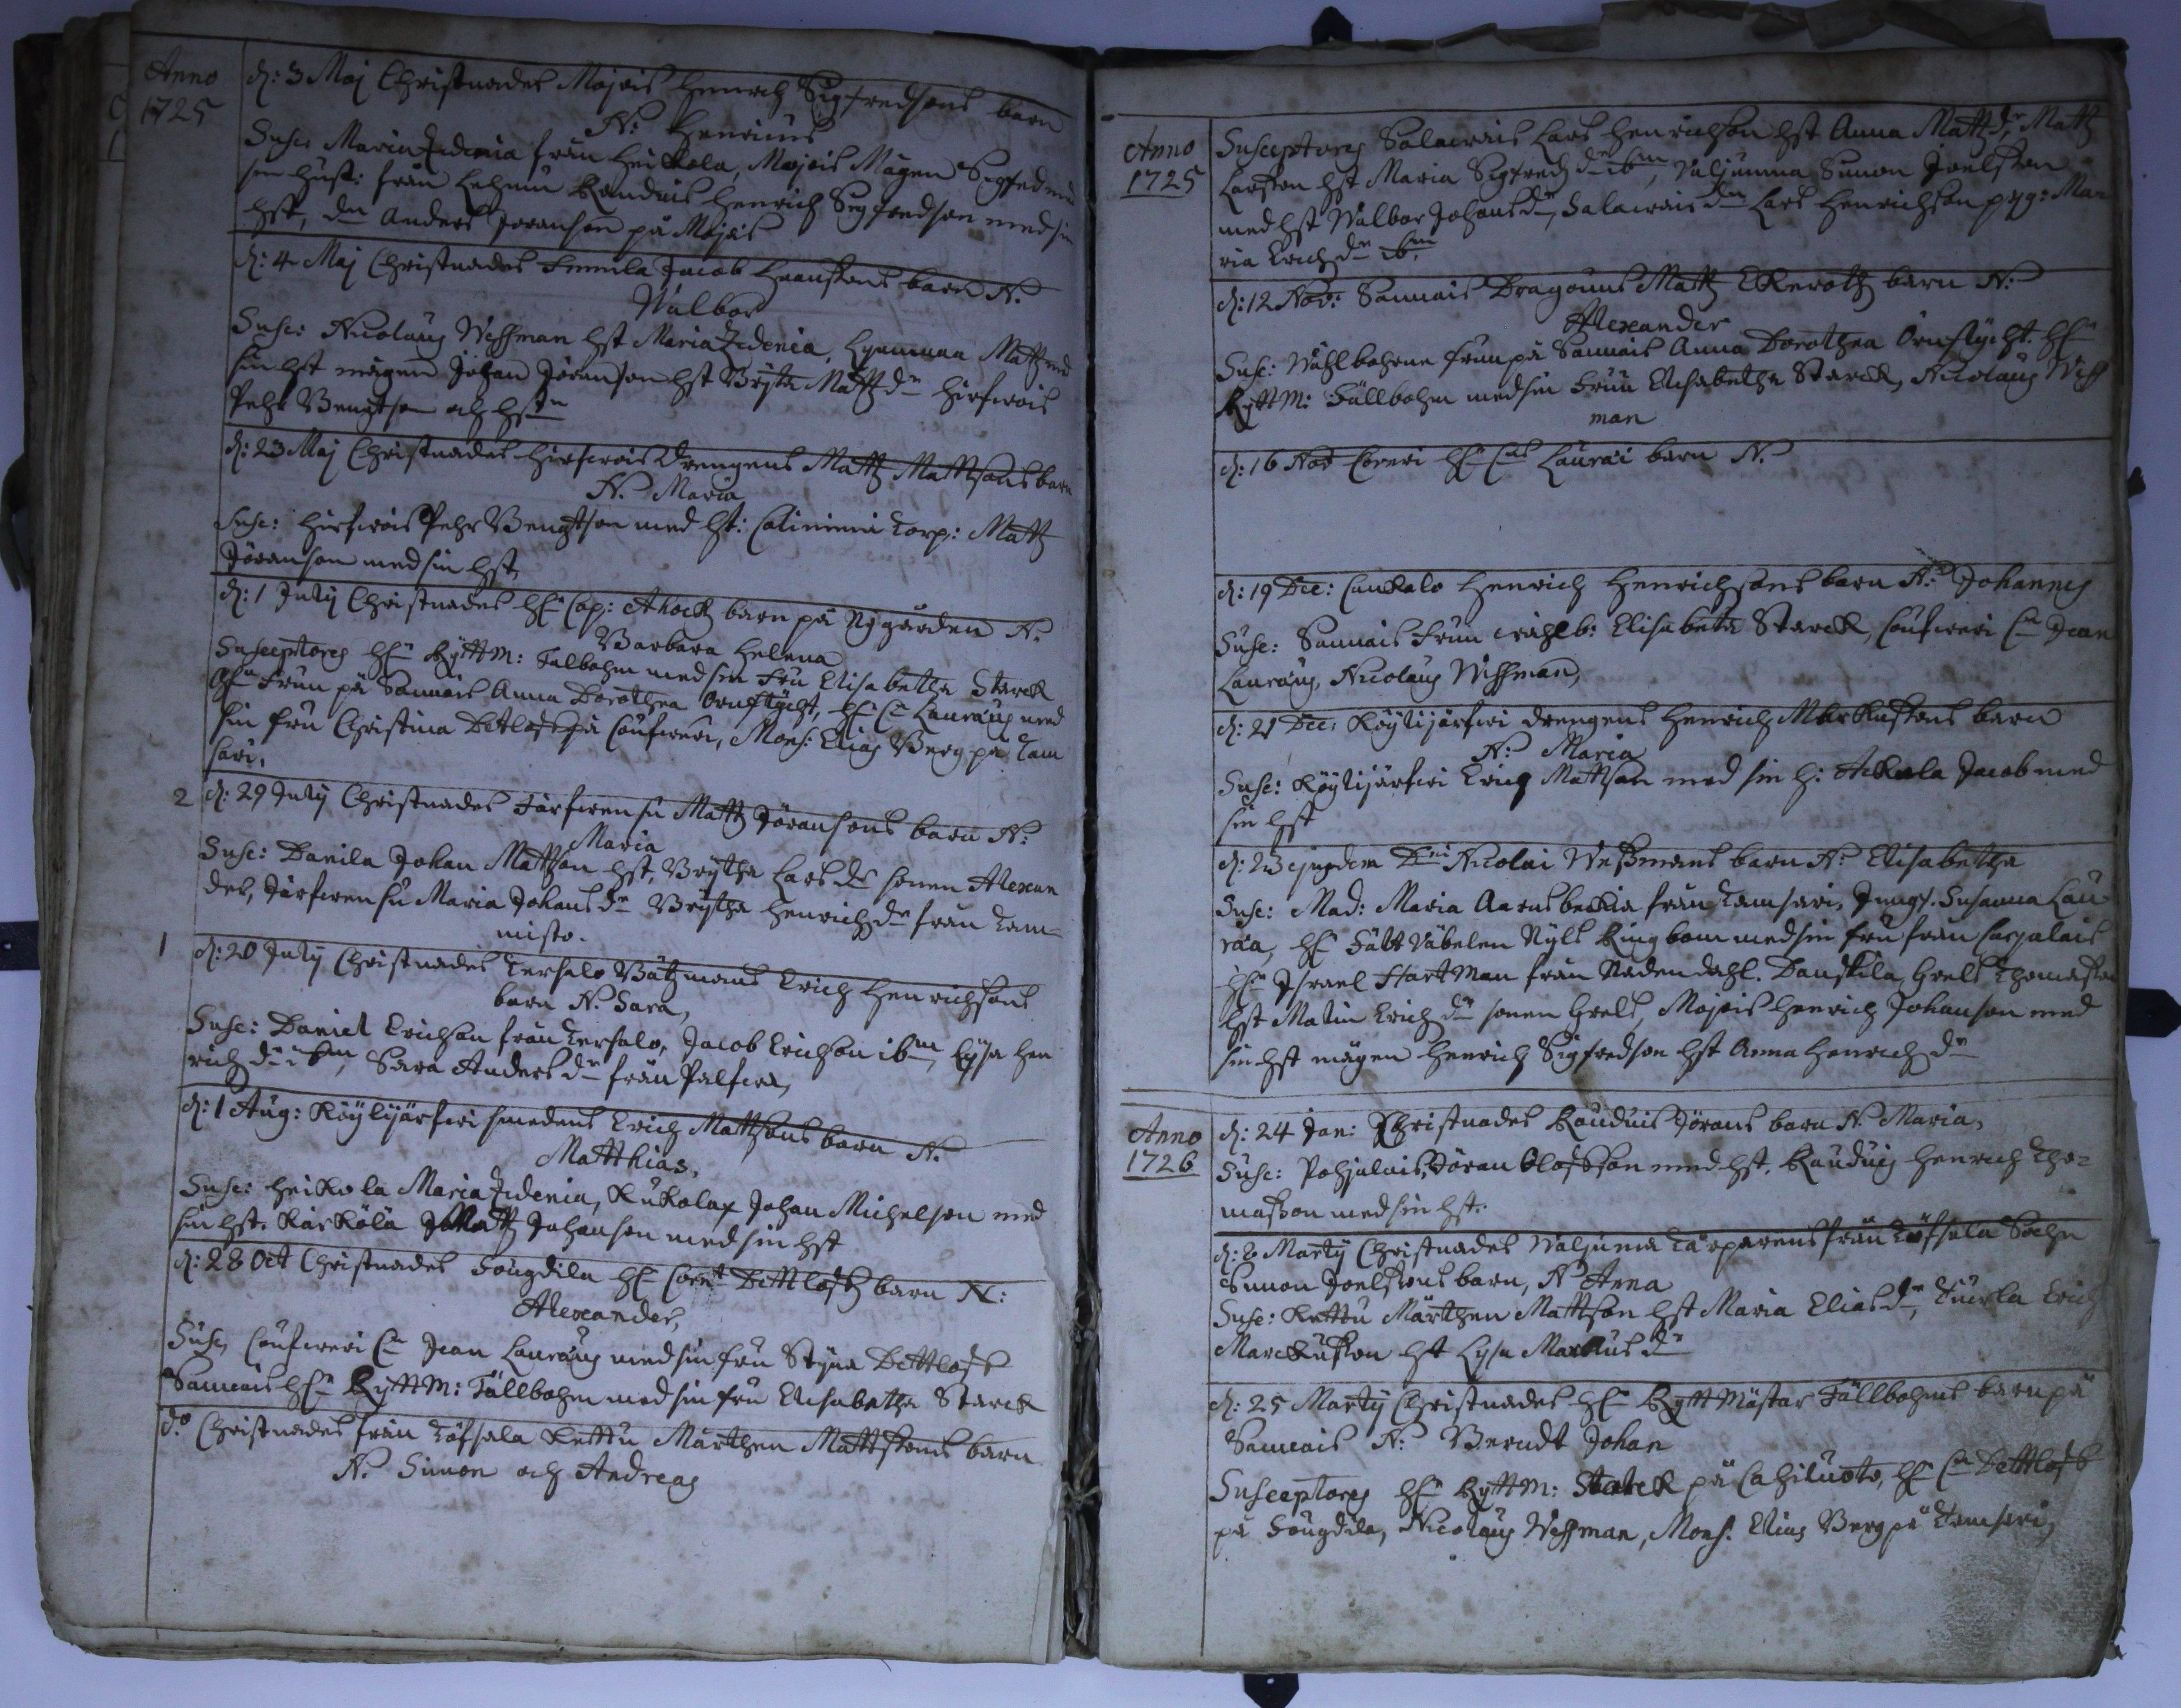 Anno
1725
d: 3 Maj Christnades Mojois Henrich Sigfredsons barn
N: Henricus
Susc: Maria Zidenia från Heickola, Mojois Mågen Sigfred med
sin hust: från Lehmu Kauduis Henrich Sigfredson med sin
hst, dn Anders Joranson på Mojois
d: 4 Maj Christnades Jacob barn N.
Walbor
Susc: Nicolaus Wessman hst Maria Zidenia, Matz med
sin hst mågen Johan Joranson hst Brijta Matzdr Hirfwois
Pehr Bengtson och hstn
d: 23 Maj Christnades Hirfwois Drengens Matz Mattsons barn
N. Maria
Susc: Hirfwois Pehr Bengtson med hst: Caliniemi Torp: Matz
Jöranson med sin hst,
d: 1 July Christnades hr Cap: Ahock barn på Nygården N.
Barbara Helena
Susceptores hr RyttM: Falbohm med sin fru Elisabetha Starck
frun på Sannäis Anna Dorothea Örneflycht, hr Cn Lauræus med
sin fru Christina Ditlofs på Coufwori, Mons: Elias Berg på Tam
sari.
2 d: 29 July Christnades Järfwensu Matz Jöransons barn N:
Maria
Susc: Danila Johan Mattson hst, Brijtha Larsdr sonen Alexan
der, Järfwensu Maria Johansdr Brijtha Henrichdr från Tam=
misto.
1 d: 20 July Christnades Tersalo Båtzmans Erich Henrichsons
barn N. Sara,
Susc: Daniel Erichson från Tersalo, Jacob Erichson ibm, Lijsa Hen
richdr ibm, Sara Andersdr från Palfwa,
d: 1 Aug: Röylijärfwi smedens Erich Mattsons barn N.
Matthias,
Susc: Heikola Maria Zidenia, Kukolax Johan Michelson med
sin hst. Karkölä Matz Johanson med sin hst
d: 28 Oct Christnades Fougdila hr Corn: Dettlofs barn N:
Alexander,
Susc, Coufwori Cn Jean Lauræus med sin fru Stijna Dettlofs
Sannäis hr RyttM: Fällbohm med sin fru Elisabetha Starck
do Christnades från Töfsala Kettu Mårthen Mattssons barn
N. Simon och Andreas
Anno
1725
Susceptores Salawais Lars Henrichson hst Anna Matzdr, Matz
Larsson hst Maria Sigfredzdr ibm, Waljuma Simon Joelsson
med hst Walbor Johansdr, Salawais dn Lars Henrichson pyg: Ma
ria Erichdr ibm
d: 12 Nov: Sannäis Dragouns Matz Ekeroth barn N:
Alexander
Susc: Wählbohrne frun på Sannäis Anna Dorothea Örneflycht. hr
RyttM: Fällbohm med sin Fru Elisabetha Starck, Nicolaus Wess
man
d: 16 Nov hr Cns Lauræi barn N.
d: 19 Dec: Cankalo Henrich Henrichsons barn N: Johannes
Susc: Sannäis Frun wählb: Elisabeta Starck, Coufweri Cn Jean
Lauræus, Nicolaus Wessman,
d: 21 Dec: Röylijärfwi drengens Henrich Markussons barn
N: Maria
Susc: Röylijärfwi Erich Mattson med sin h: Ackola Jacob med
sin hst
d: 23 ejusdem Dni Nicolai Wessmans barn N: Elisabetha
Susc: Mad: Maria från Tamsari, Jungf. Susanna Lau
ræa, hr Fält Väbelen Nyls Ringbom med sin fru från Carjalais
hr Israel Hartman från Nadendahl. Danskila Grels Thomasson
hst Malin Erichdr sonen Grels, Mojois Henrich Johanson med
sin hst mågen Henrich Sigfredson hst Anna Henrichdr
Anno
1726
d: 24 Jan: Christnades Kauduis Jörans barn N. Maria,
Susc: Pohjalais, Jöran Olofsson med hst, Kauduis Henrich Tho=
masson med sin hst.
d: 2 Marty Christnades Waljuma Tårparens från Töfsala Sochn
Simon Joelssons barn, N Anna
Susc: Kettu Mårthen Mattson hst Maria Eliasdr, Tuorla Erich
Marckusson hst Lysa Markusdr
d: 25 Marty Christnades hr RyttMästar Fällbohms barn på
Sannäis N: Berndt Johan
Susceptores hr RyttM: Starck på Cahiluoto, hr Cn Dettlofs
på Fougdila, Nicolaus Wessman, Mons. Elias Berg på Tamsari,